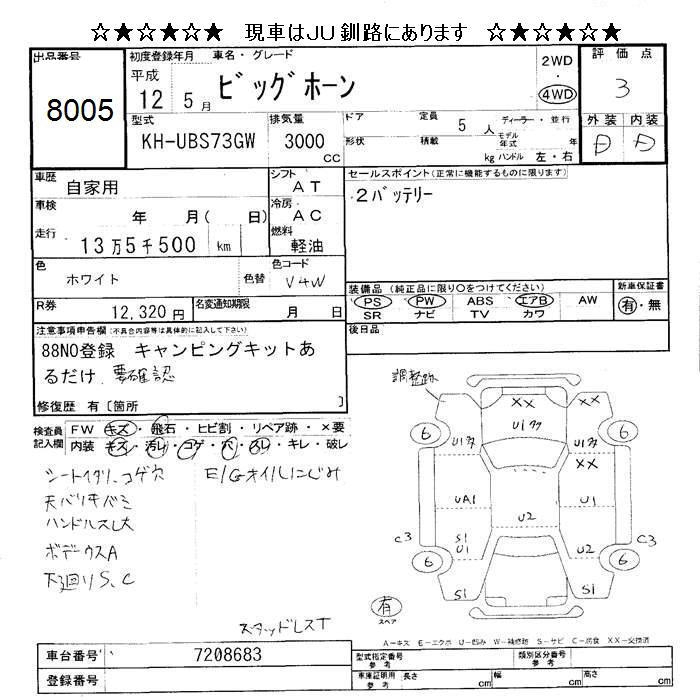 ☆★☆★☆★ 現車はJU釧路にあります ☆★☆★☆★
出品番号 8005
初度登録年月 車名・グレード
平成 12 5月 ビッグホーン
2WD・4WD
評価点 3
型式 KH-UBS73GW
排気量 3000 CC
ドア 形状
定員 5人 積載 kg
ディーラー・並行
モデル年式 年
ハンドル 左・右
外装 内装
D D
車歴 自家用
シフト AT
セールスポイント(正常に機能するものに限ります)
2バッテリー
車検 年 月( 日)
冷房 AC
走行 13万5千500 km
燃料 軽油
色 ホワイト 色替
色コード V4W
装備品 (純正品に限り○をつけてください)
PS PW ABS エアB AW
SR ナビ TV カワ
新車保証書 有・無
R券 12,320円
名変通知期限 月 日
後日品
注意事項申告欄(不具合内容等は具体的に記入して下さい)
88NO登録 キャンピングキットあ
るだけ 要確認
修復歴 有〔箇所 〕
検査員記入欄
FW キズ・飛石・ヒビ割・リペア跡・×要
内装 キズ・汚レ・コゲ・穴・スレ・キレ・破レ
シートイタリ、コゲ穴
E/Gオイルにじみ
天バリキバミ
ハンドルス大
ボデーウスA
下廻りS、C
スタッドレスT
調整跡
XX
U1タ
6 U1タ U1タ 6
XX
UA1 U1
U2
C3 S1 U1 U2 C3
6 6
S1 S1
有 スペア
A-キズ E-エクボ U-凹み W-補修跡 S-サビ C-腐食 XX-交換済
車台番号 7208683
型式指定番号 参考
類別区分番号 参考
登録番号
車庫証明用 参考 長さ cm 幅 cm 高さ cm